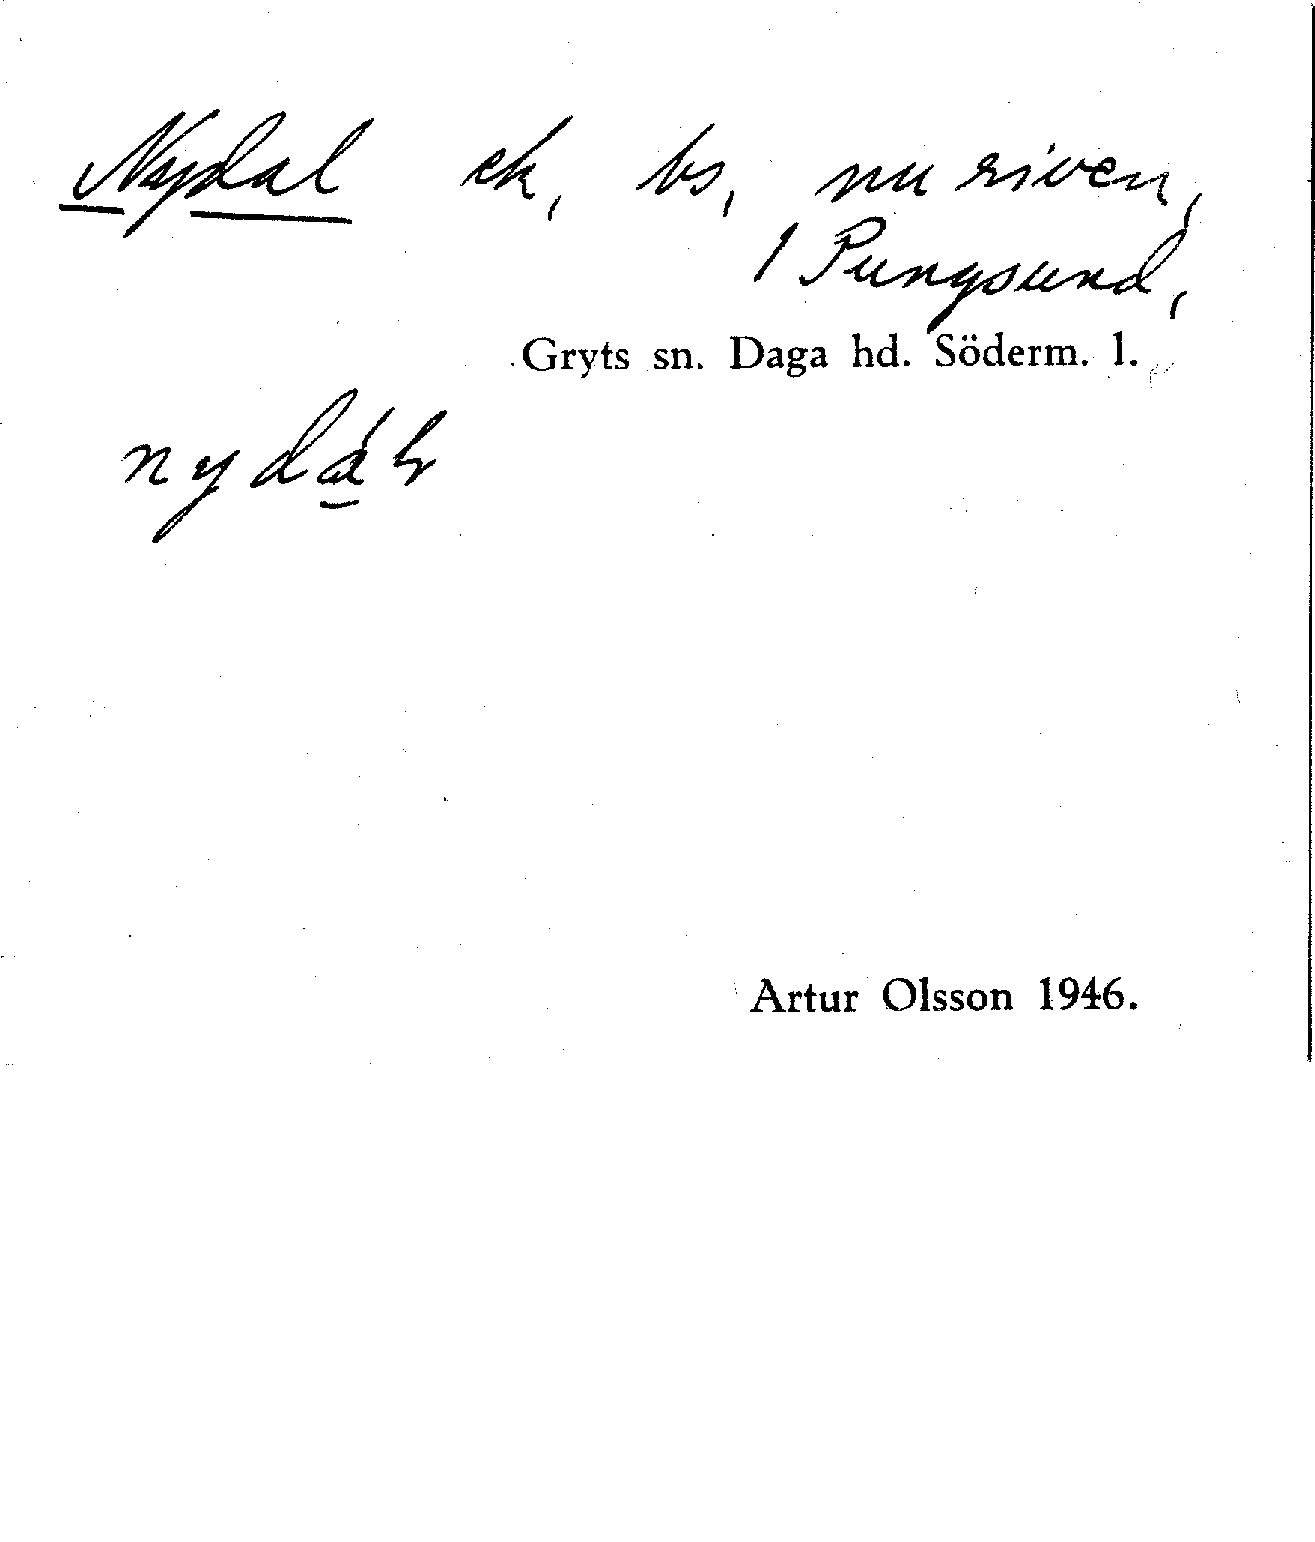 Nydal ek, bs, nu riven,
1 Pungsund,
Gryts sn. Daga hd. Söderm. l.
Artur Olsson 1946.